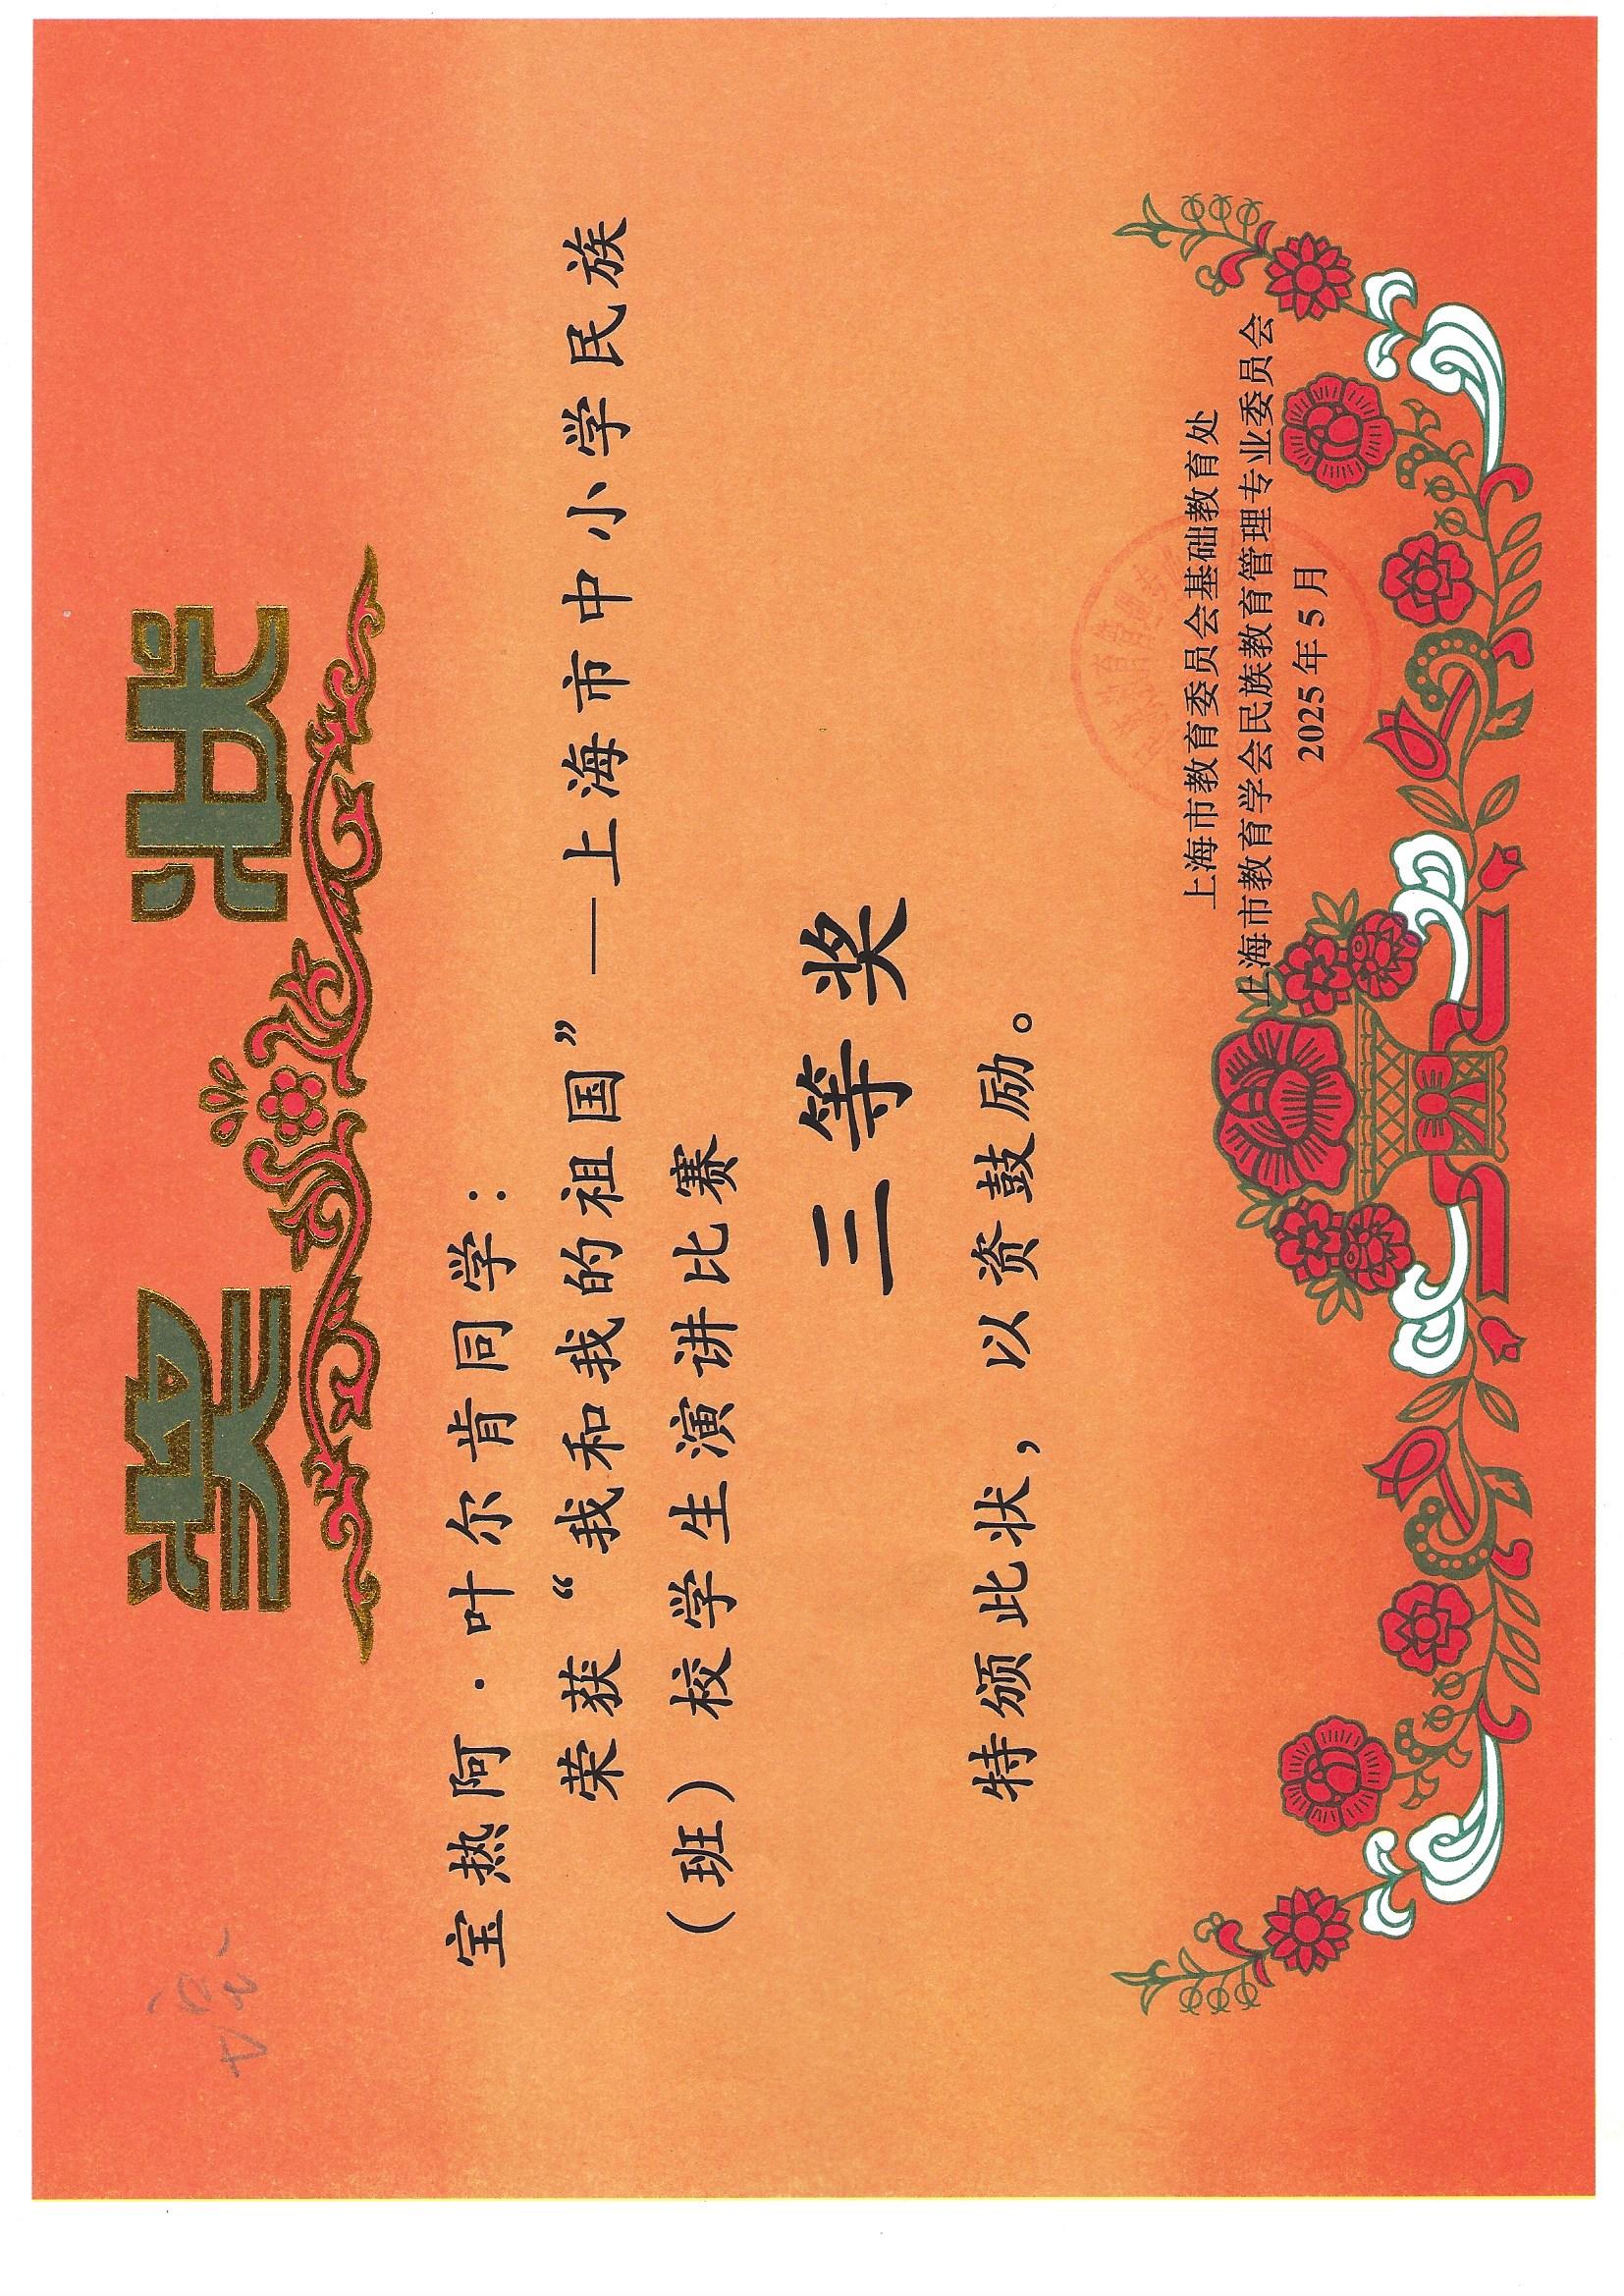 奖状
宝热阿·叶尔肯同学：
荣获“我和我的祖国”—上海市中小学民族
（班）校学生演讲比赛
三等奖
特颁此状，以资鼓励。
上海市教育委员会基础教育处
上海市教育学会民族教育管理专业委员会
2025年5月